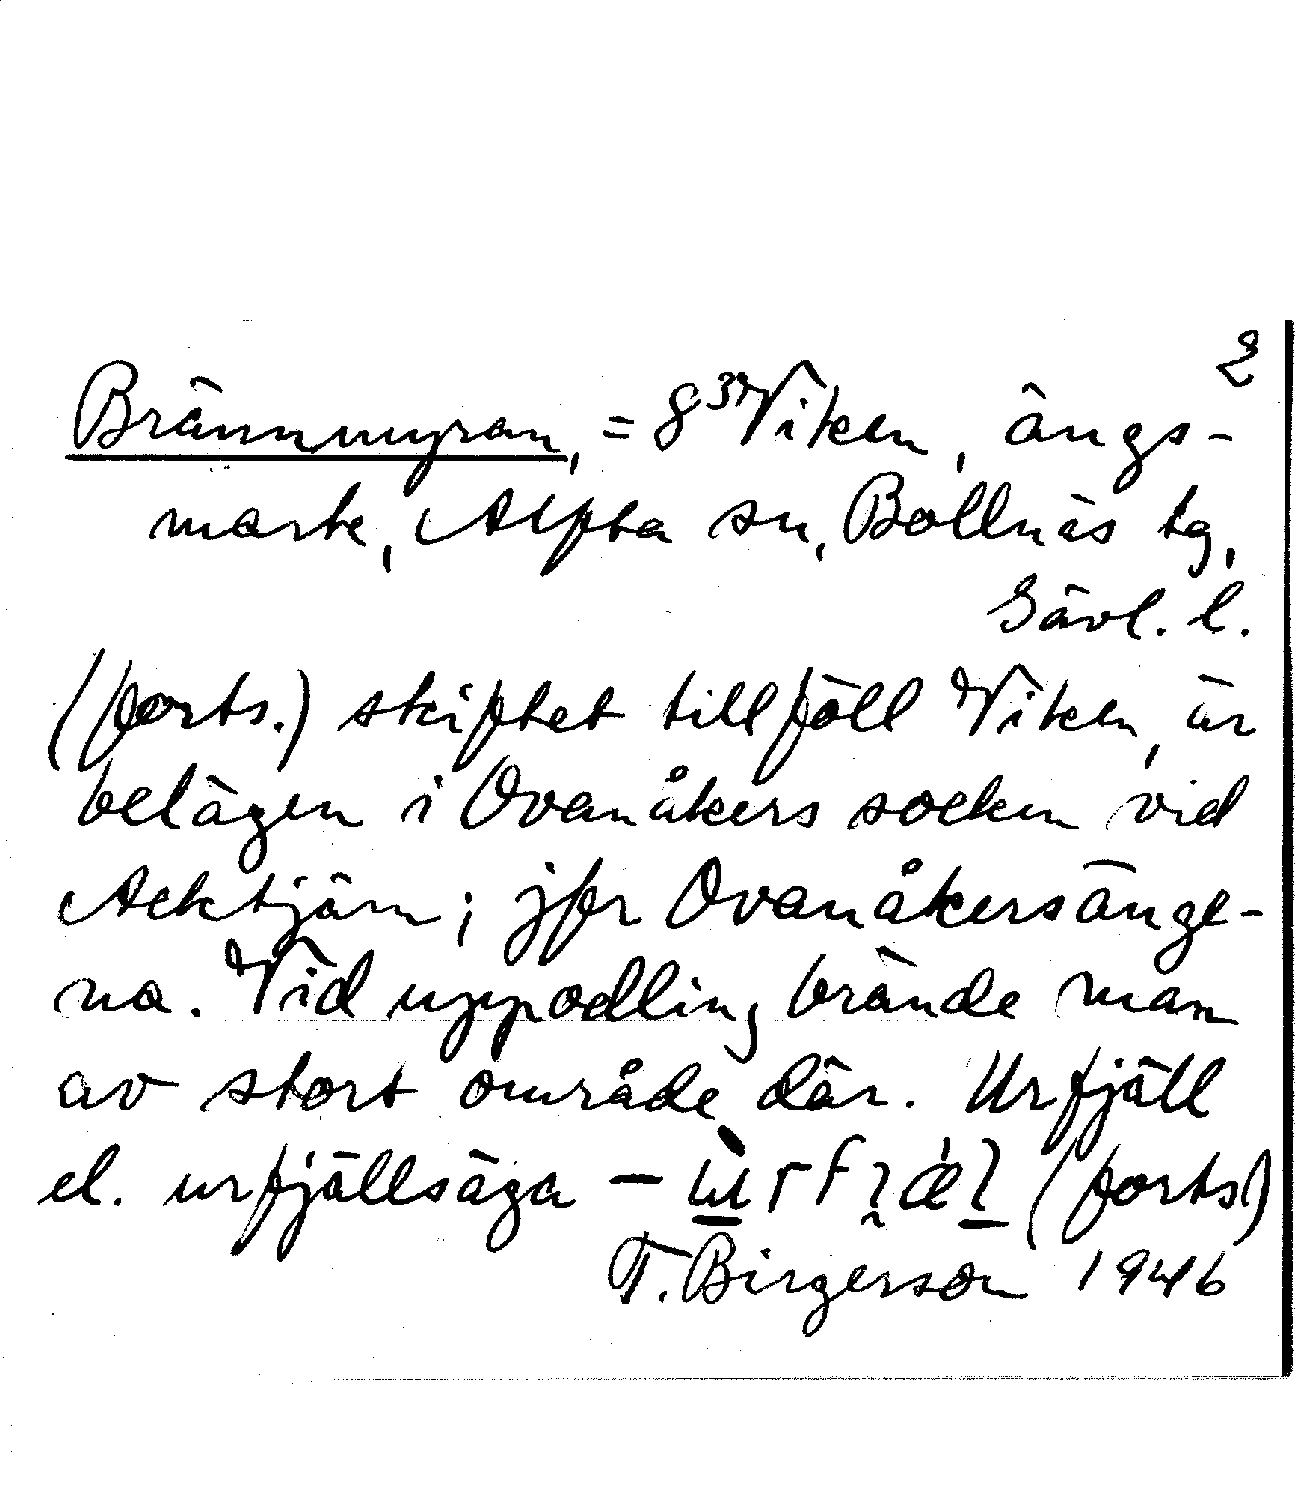 2
Brännmyran, = 8³⁹ Viken, ängs-
mark, Alfta sn, Bollnäs tg,
Gävl. l.
(forts.) skiftet tillföll Viken, är
belägen i Ovanåkers socken vid
Acktjärn; jfr Ovanåkersänge-
na. Vid uppodling brände man
av stort område där. Urfjäll
el. urfjällsäga – (forts.)
T. Birgerson 1946